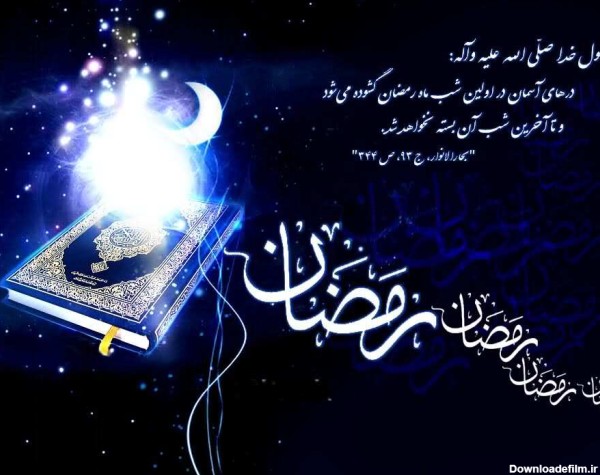 ول خدا صلّی الله علیه وآله:
درهای آسمان در اولین شب ماه رمضان گشوده می‌شود
و تا آخرین شب آن بسته نخواهد شد.
"بحارالانوار، ج ۹۳، ص ۳۴۴"
رمضان
رمضان
رمضان
ان
Downloadefilm.ir